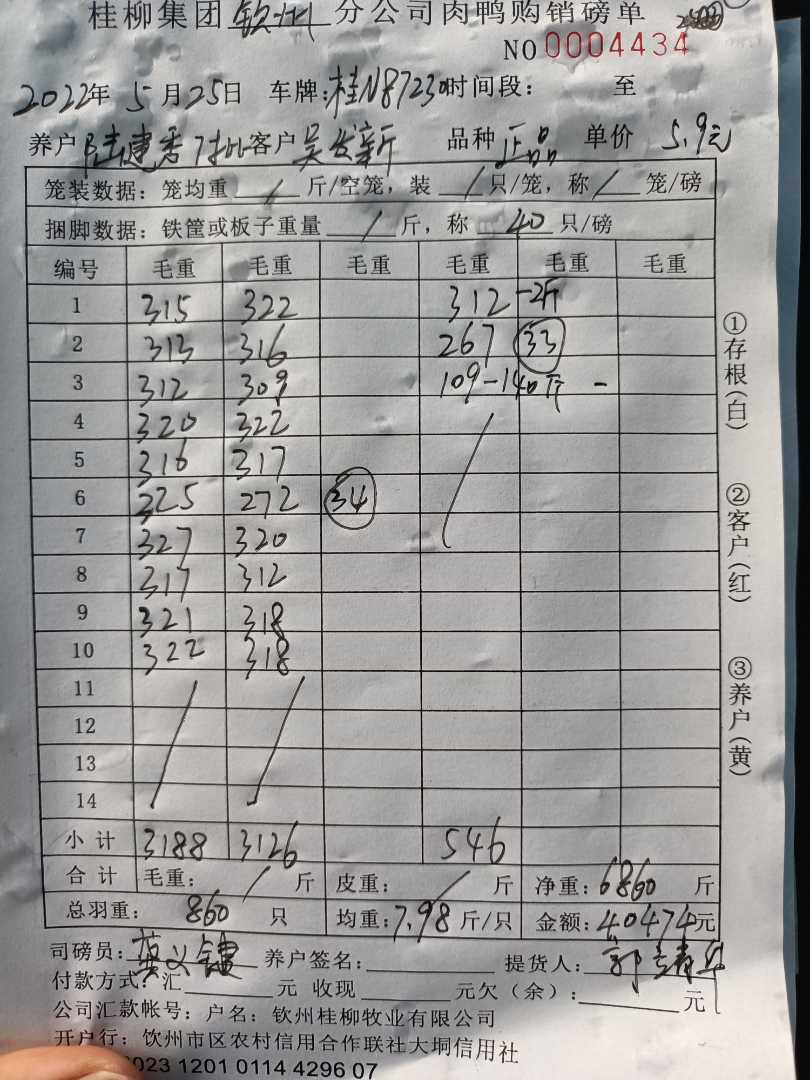 桂柳集团 钦州 分公司肉鸭购销磅单
NO 0004434
2022年 5月25日 车牌:桂N87230时间段: 至
养户 陆建秀 客户 吴发新 品种 正品 单价 5.9元
笼装数据: 笼均重 / 斤/空笼, 装 / 只/笼, 称 / 笼/磅
捆脚数据: 铁筐或板子重量 / 斤, 称 40 只/磅
编号 毛重 毛重 毛重 毛重 毛重 毛重
1 315 322 312 -2斤
2 313 316 267 33
3 312 309 109-140斤 -
4 320 322
5 316 317
6 325 272 34
7 327 320
8 317 312
9 321 318
10 322 318
11
12
13
14
小计 3188 3126 546
合计 毛重: / 斤 皮重: / 斤 净重: 6860 斤
总羽重: 860 只 均重: 7.98 斤/只 金额: 40474元
①存根(白)
②客户(红)
③养户(黄)
司磅员: 养户签名: 提货人:
付款方式: 汇 元 收现 元欠(余): 元
公司汇款帐号: 户名: 钦州桂柳牧业有限公司
开户行: 钦州市区农村信用合作联社大垌信用社
023 1201 0114 4296 07